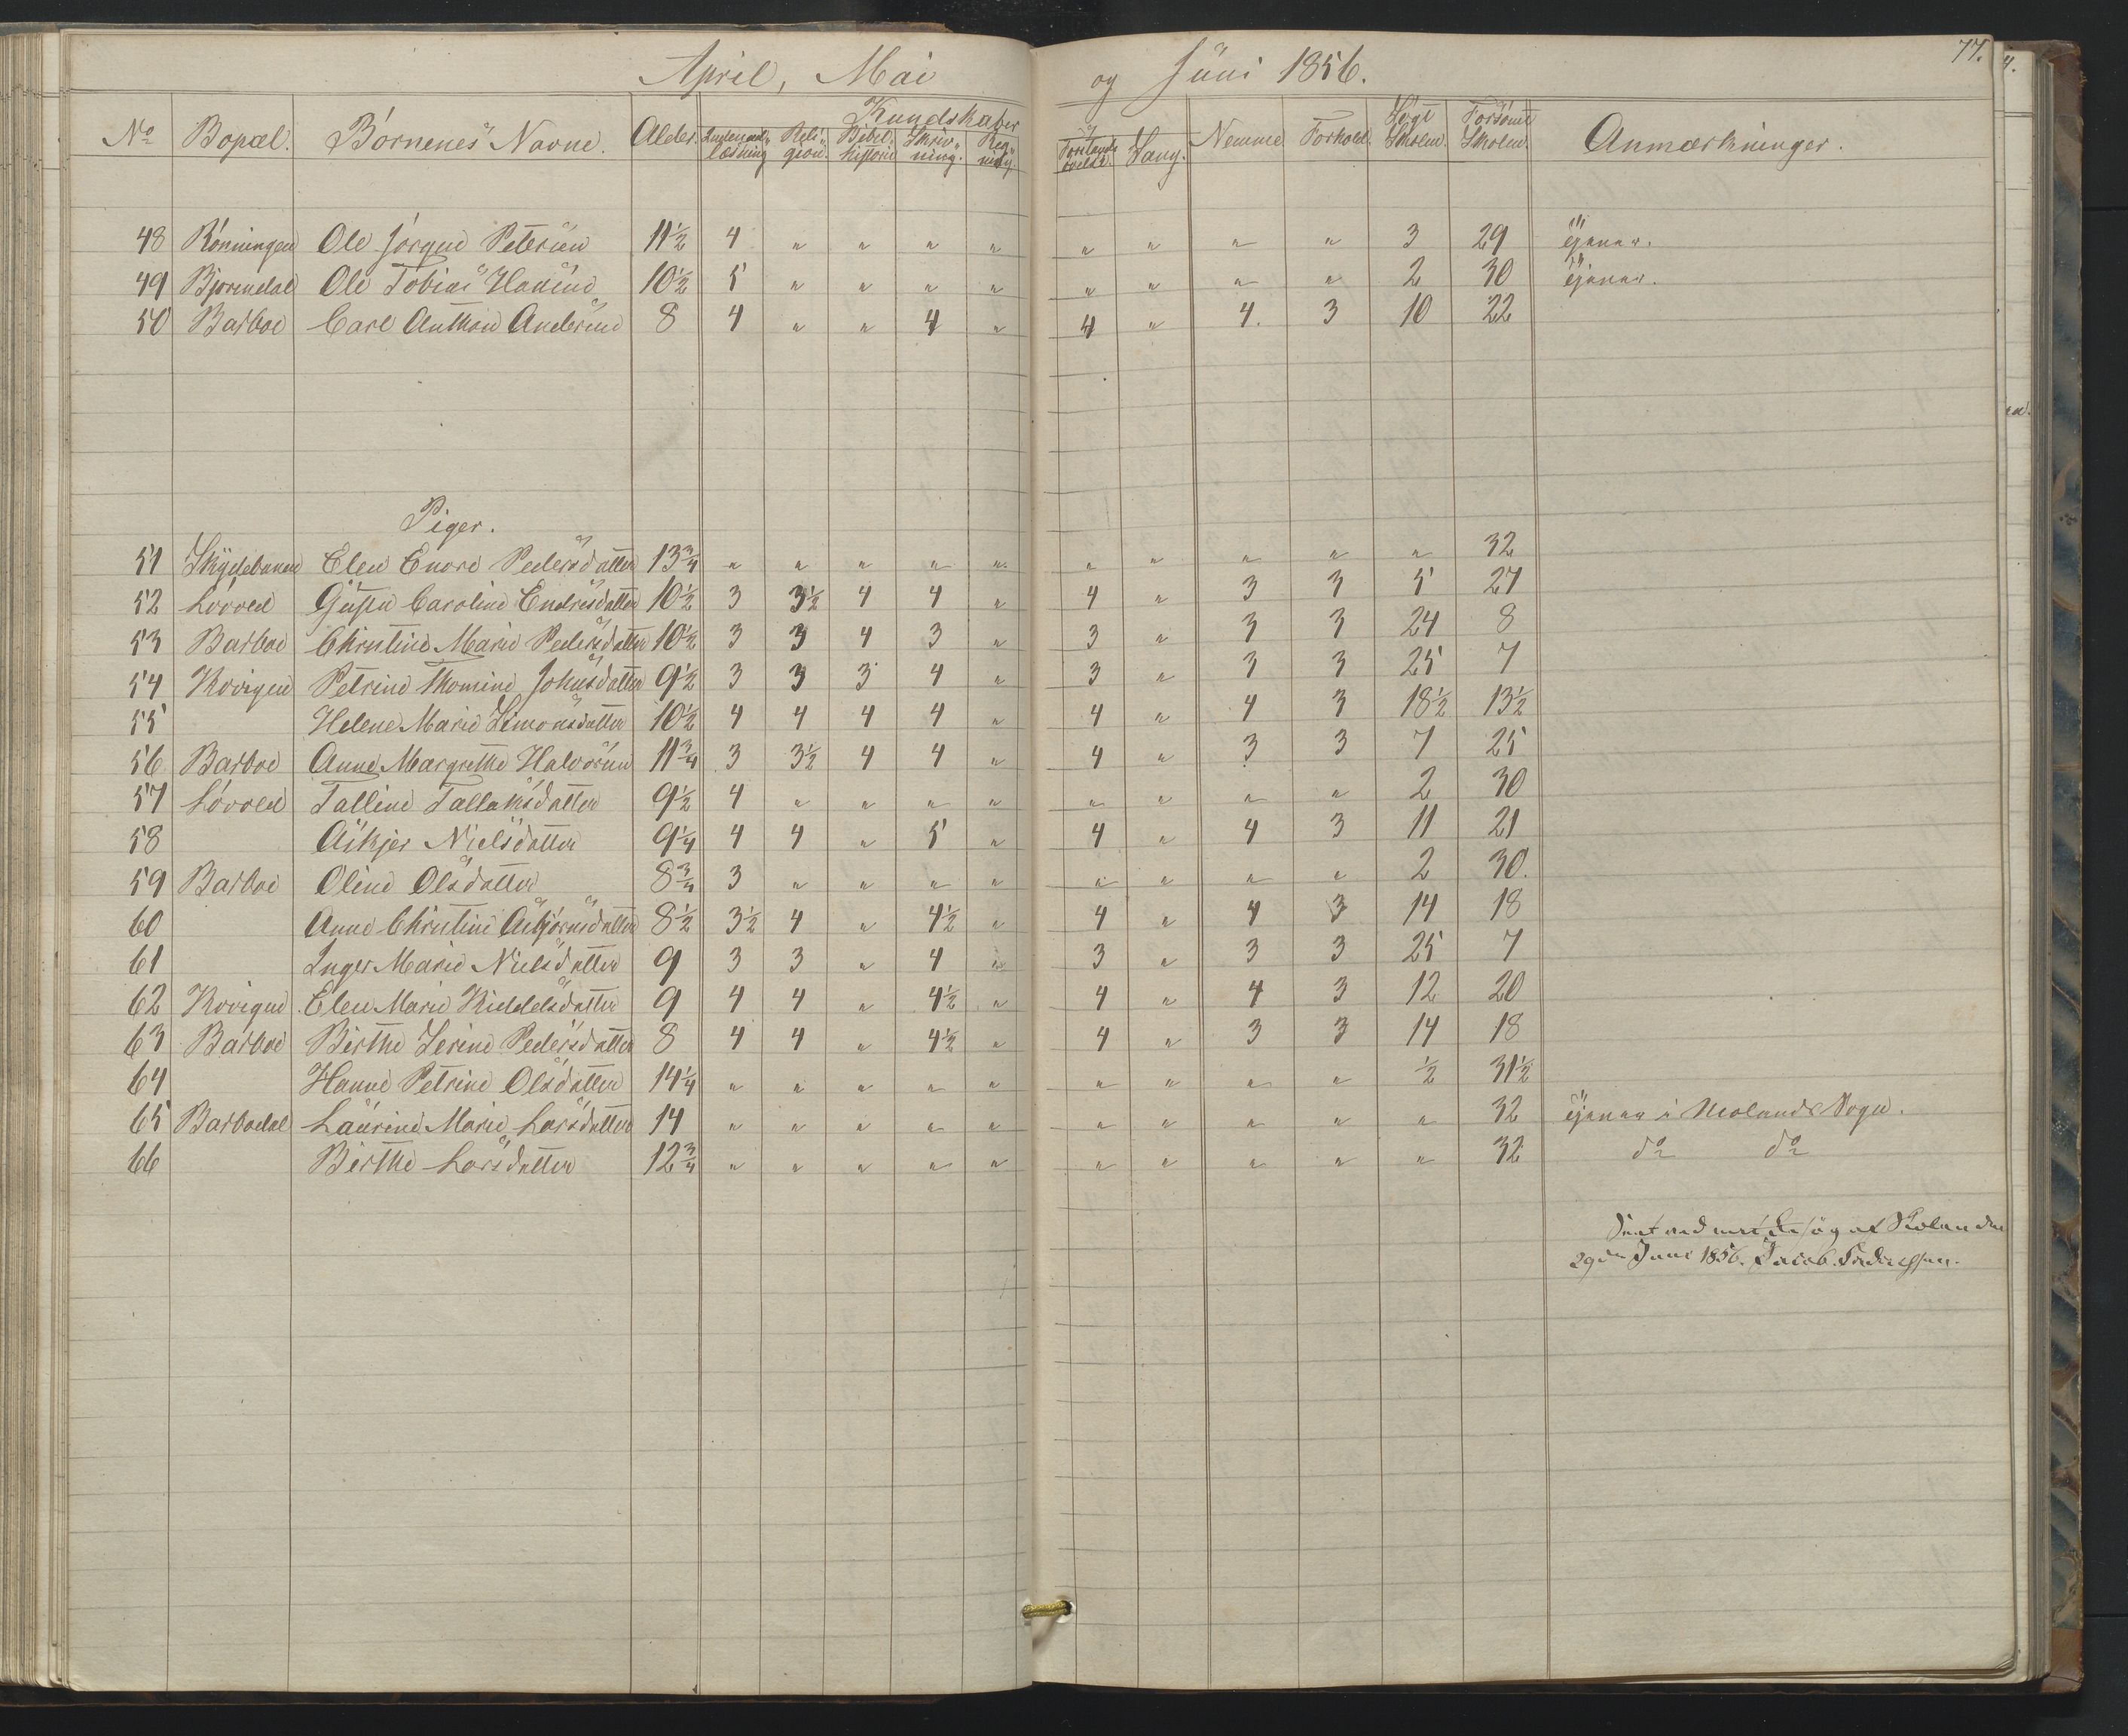 77.
April, Mai og Juni 1856.
No Bopæl. Børnenes Navne. Alder. Kundskaber Nemme Forhold. Søgt Skolen. Forsømt Skolen. Anmærkninger.
Indenadlæsning Religion. Bibelhistorie Skrivning. Regning Forstandsøvelse. Sang.
48 Rønningen Ole Jørgen Petersen 11½ 4 " " " " " " " " 3 29 tjener.
49 Bjørndal Ole Tobias Hansen 10½ 5 " " " " " " " " 2 30 tjener.
50 Barboe Carl Anthon Andersen 8 4 " " 4 " 4 " 4. 3 10 22
Piger.
51 Skydebanen Elen Enore Pedersdatter 13¾ " " " " " " " " " " 32
52 Løvved Gusta Caroline Endresdatter 10½ 3 3½ 4 4 " 4 " 3 3 5 27
53 Barboe Christine Marie Pedersdatter 10½ 3 3 4 3 " 3 " 3 3 24 8
54 Kovigen Petrine Thomine Johnsdatter 9½ 3 3 3 4 " 3 " 3 3 25 7
55 Helene Marie Simonsdatter 10½ 4 4 4 4 " 4 " 4 3 18½ 13½
56 Barboe Anne Margrethe Halvorsen 11¾ 3 3½ 4 4 " 4 " 3 3 7 25
57 Løvved Talline Tallaksdatter 9½ 4 " " " " " " " " 2 30
58 Askjer Nielsdatter 9¼ 4 4 " 5 " 4 " 4 3 11 21
59 Barboe Oline Olsdatter 8¾ 3 " " " " " " " " 2 30.
60 Anne Christine Asbjørnsdatter 8½ 3½ 4 " 4½ " 4 " 4 3 14 18
61 Inger Marie Nielsdatter 9 3 3 " 4 " 3 " 3 3 25 7
62 Kovigen Elen Marie Kiddelsdatter 9 4 4 " 4½ " 4 " 4 3 12 20
63 Barboe Birthe Serine Pedersdatter 8 4 4 " 4½ " 4 " 3 3 14 18
64 Hanne Petrine Olsdatter 14¼ " " " " " " " " " ½ 31½
65 Barbodal Laurine Marie Larsdatter 14 " " " " " " " " " " 32 tjener i Molands Sogn.
66 Birthe Larsdatter 12¾ " " " " " " " " " " 32 do do
Seet ved mit Besøg af Skolen den
29de Juni 1856. Jacob